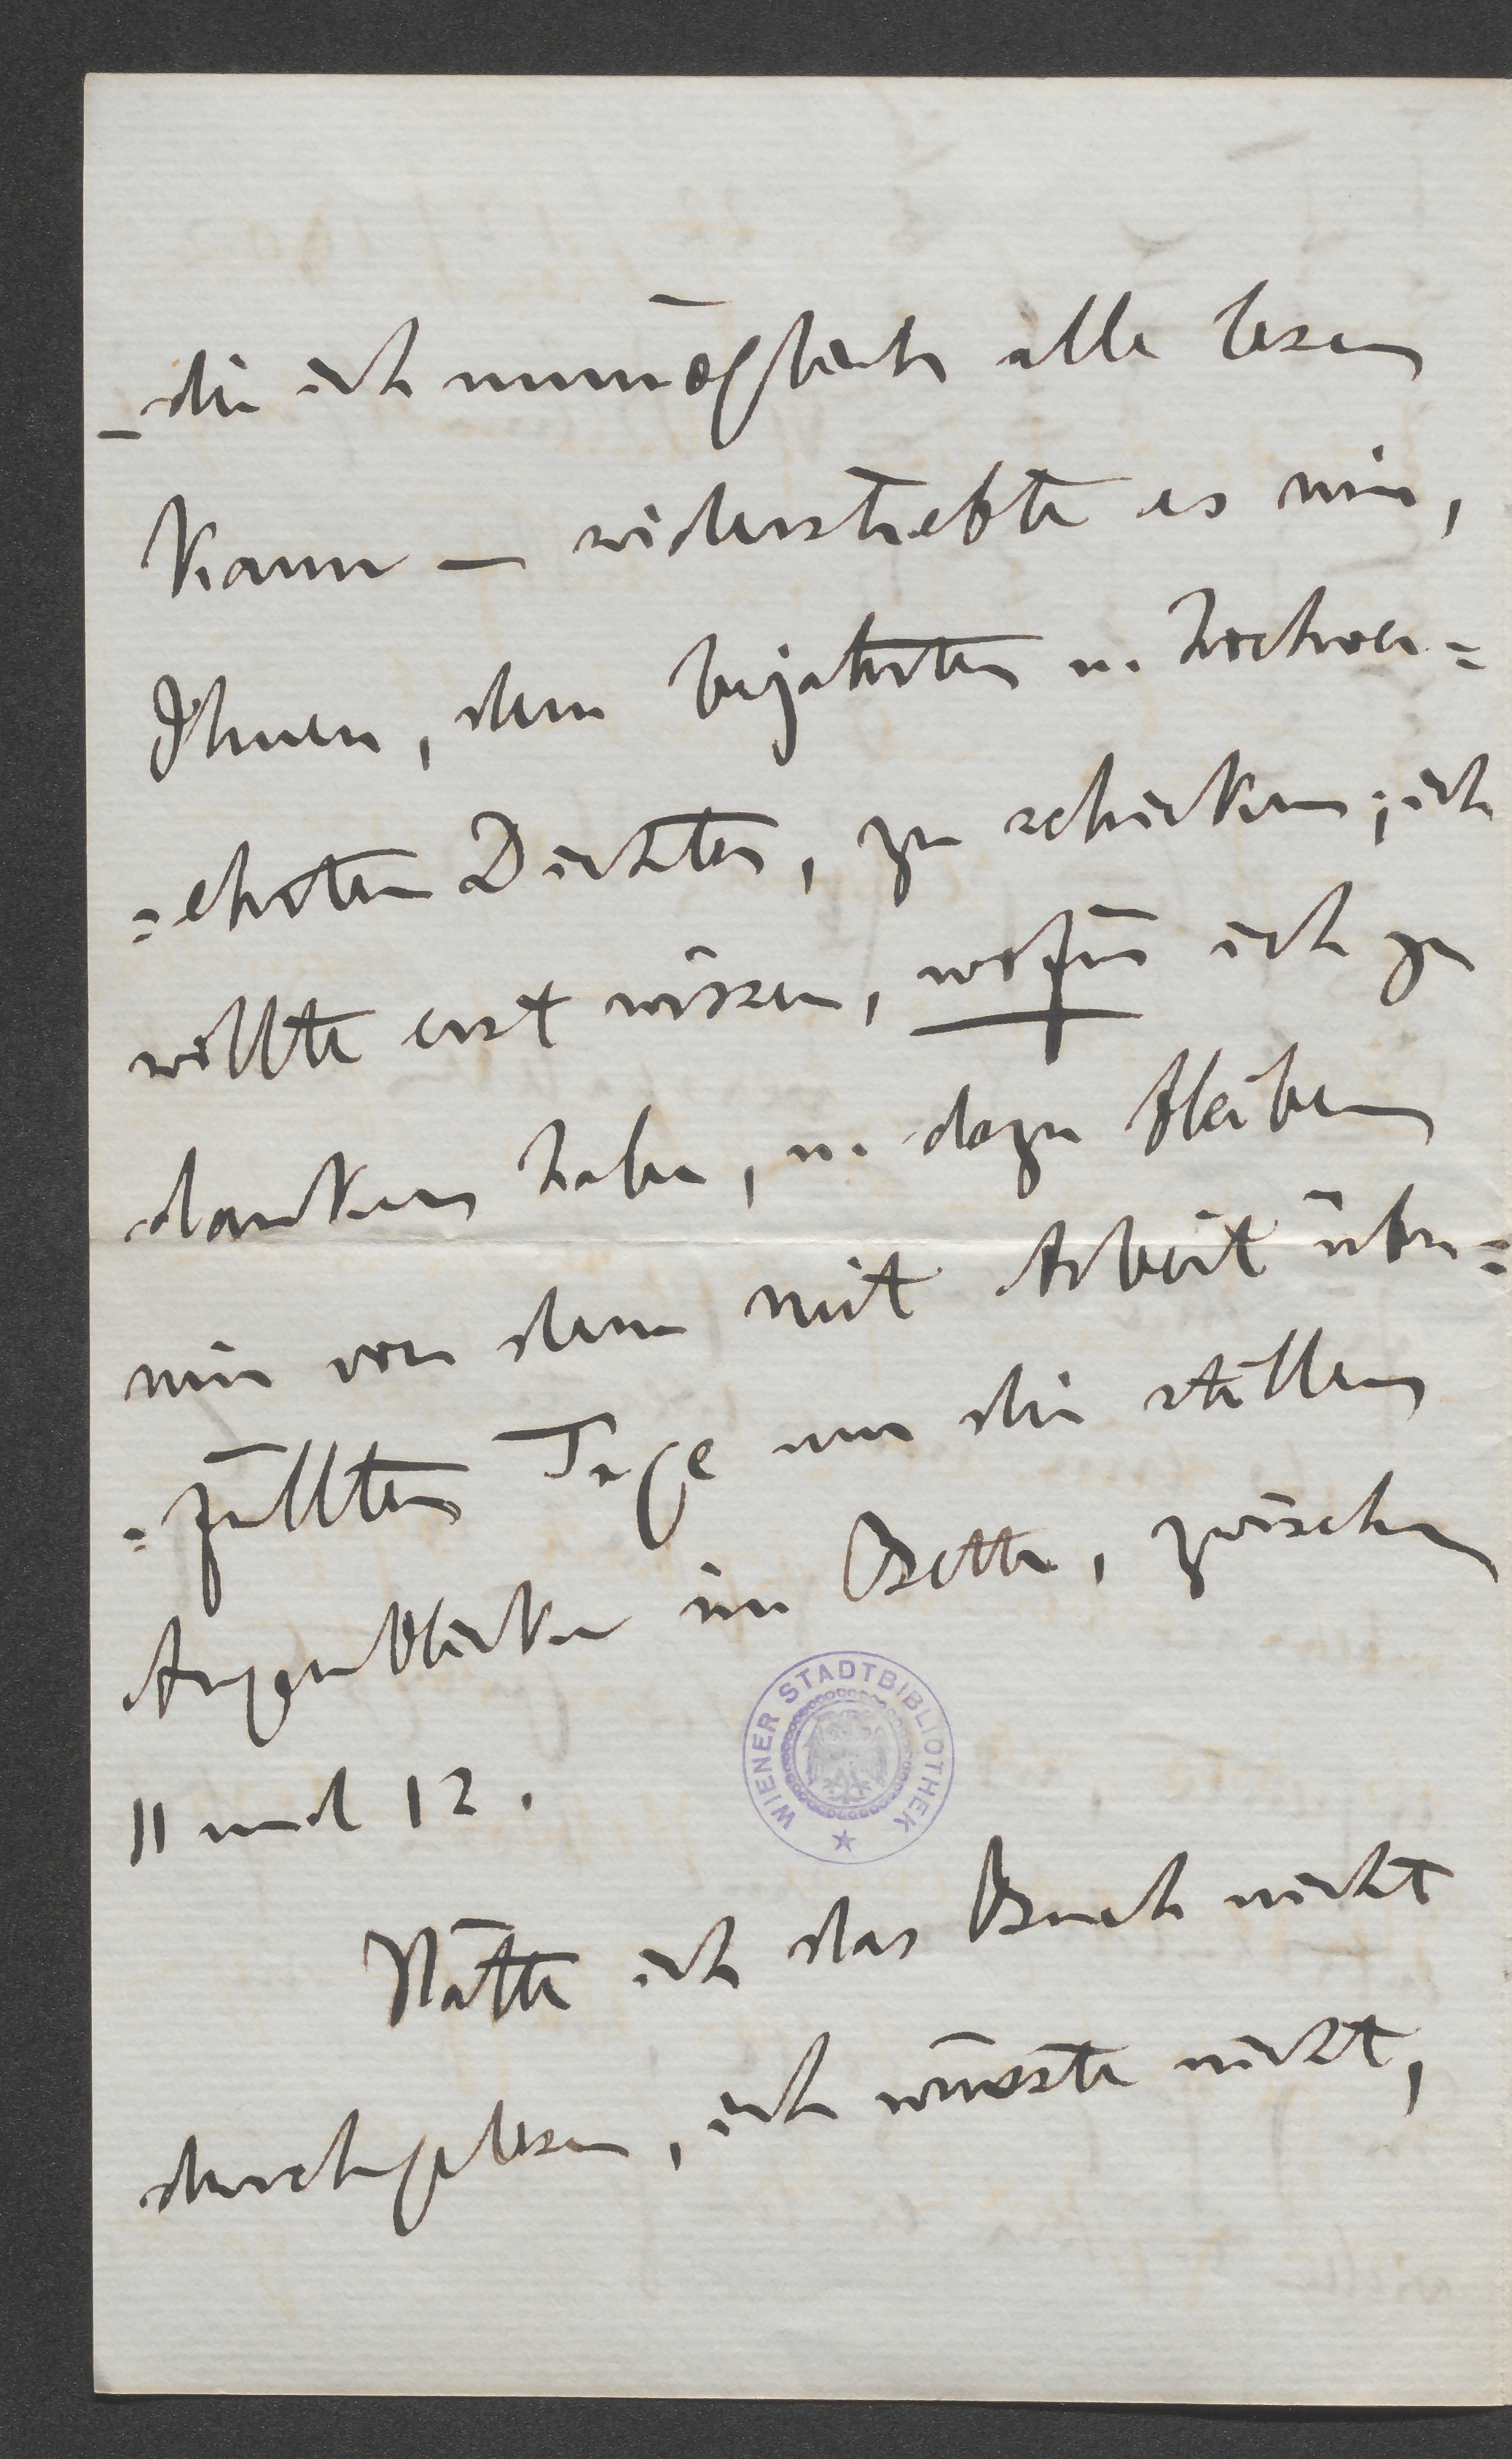 – die ich unmöglich alle lesen
kann – widerstrebte es mir,
Ihnen, dem bejahrten u. hochver=
=ehrten Dichter, zu schicken; ich
wollte erst wissen, wofür ich zu
danken habe, u. dazu bleiben
mir von dem mit Arbeit über=
=füllten Tage nur die stillen
Augenblicke im Bette, zwischen
11 und 12.
WIENER STADTBIBLIOTHEK
Hätte ich das Buch nicht
durchgelesen, ich wüsste nicht,